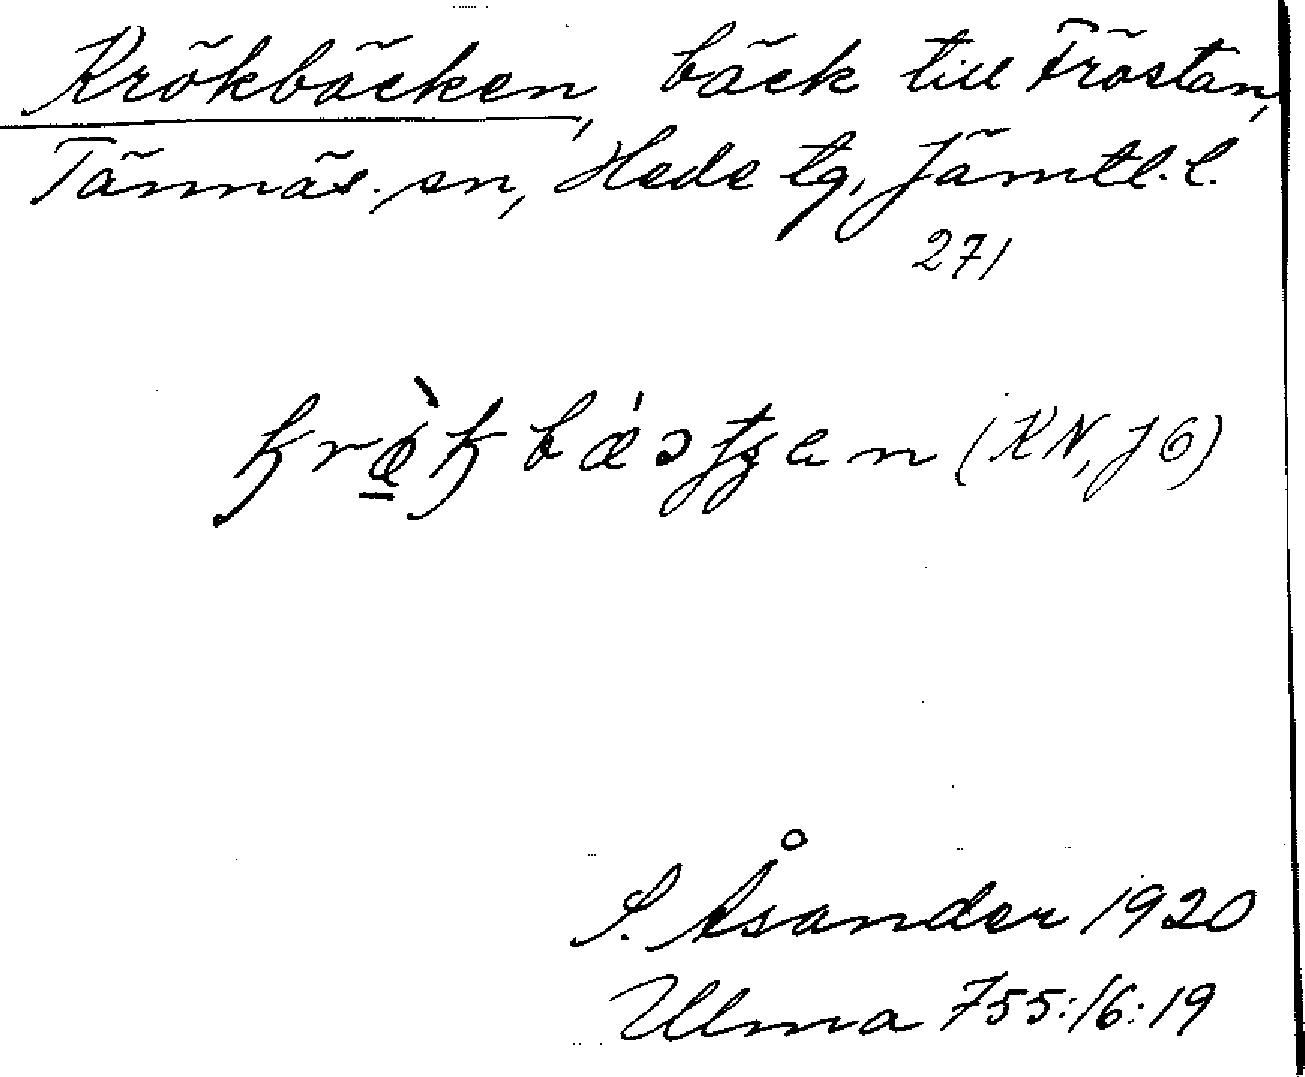 Krökbäcken, bäck till Fröstan,
Tännäs sn, Hede tg, Jämtl. l.
271
(KN, JG)
S. Åsander 1920
Ulma 755:16:19